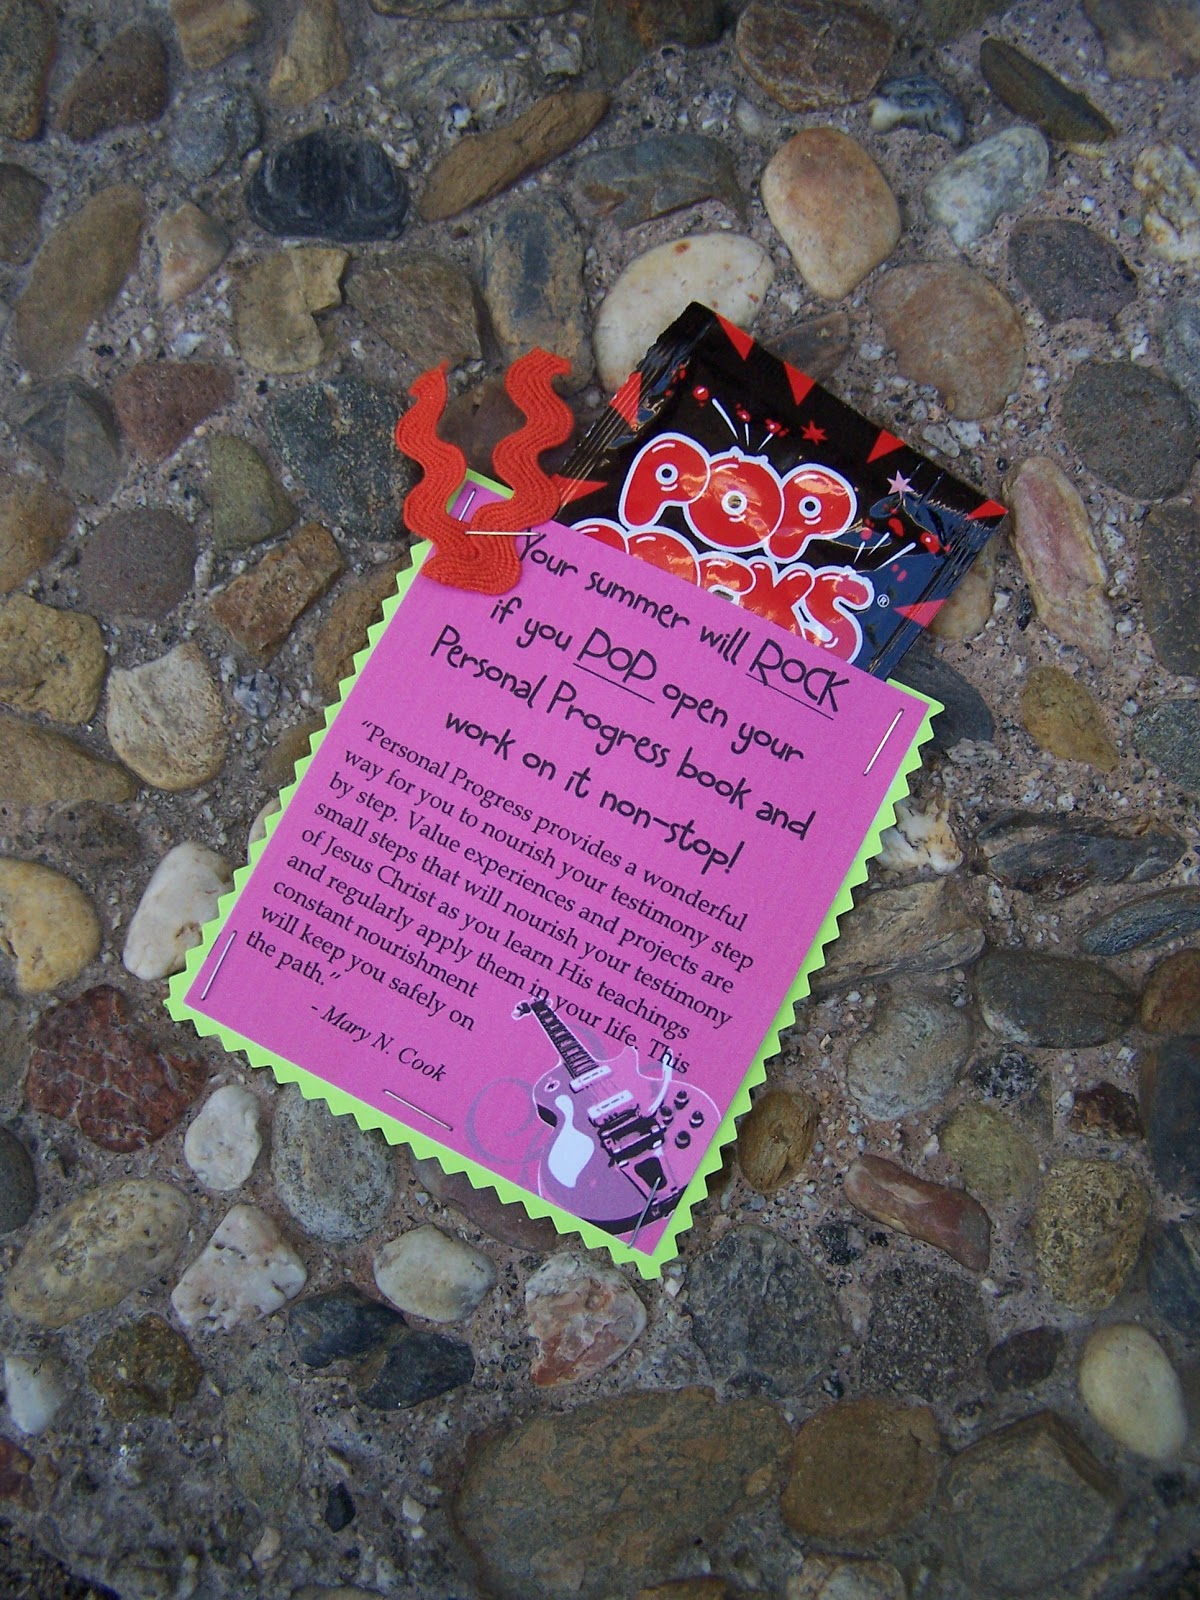 POP
ROCKS®
Your summer will ROCK
if you POP open your
Personal Progress book and
work on it non-stop!
"Personal Progress provides a wonderful
way for you to nourish your testimony step
by step. Value experiences and projects are
small steps that will nourish your testimony
of Jesus Christ as you learn His teachings
and regularly apply them in your life. This
constant nourishment
will keep you safely on
the path."
- Mary N. Cook